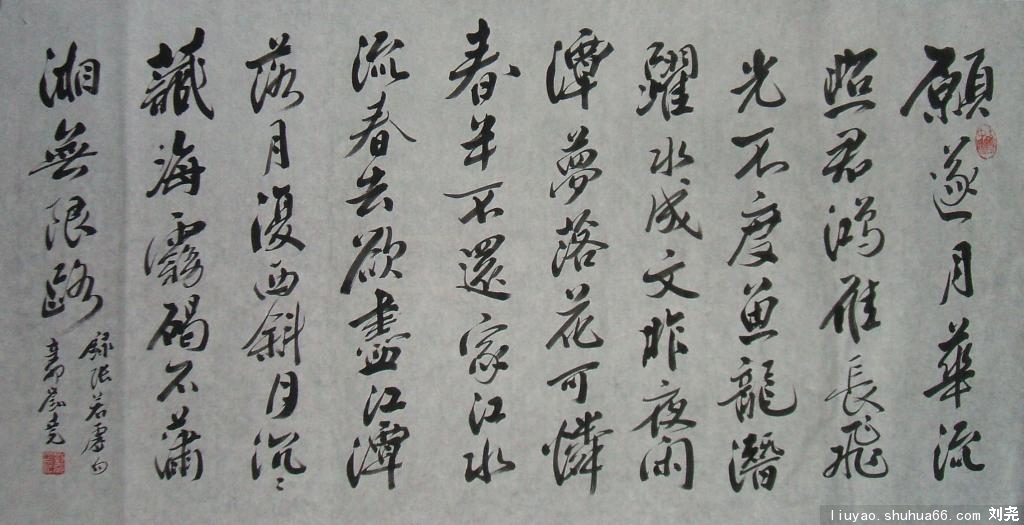 願遂月華流
照君鴻雁長飛
光不度魚龍潛
躍水成文昨夜闲
潭夢落花可憐
春半不還家江水
流春去欲盡江潭
落月復西斜月沉々
藏海霧碣石瀟
湘無限路
錄張若虛句
辛卯劉堯
liuyao.shuhua66.com 刘尧